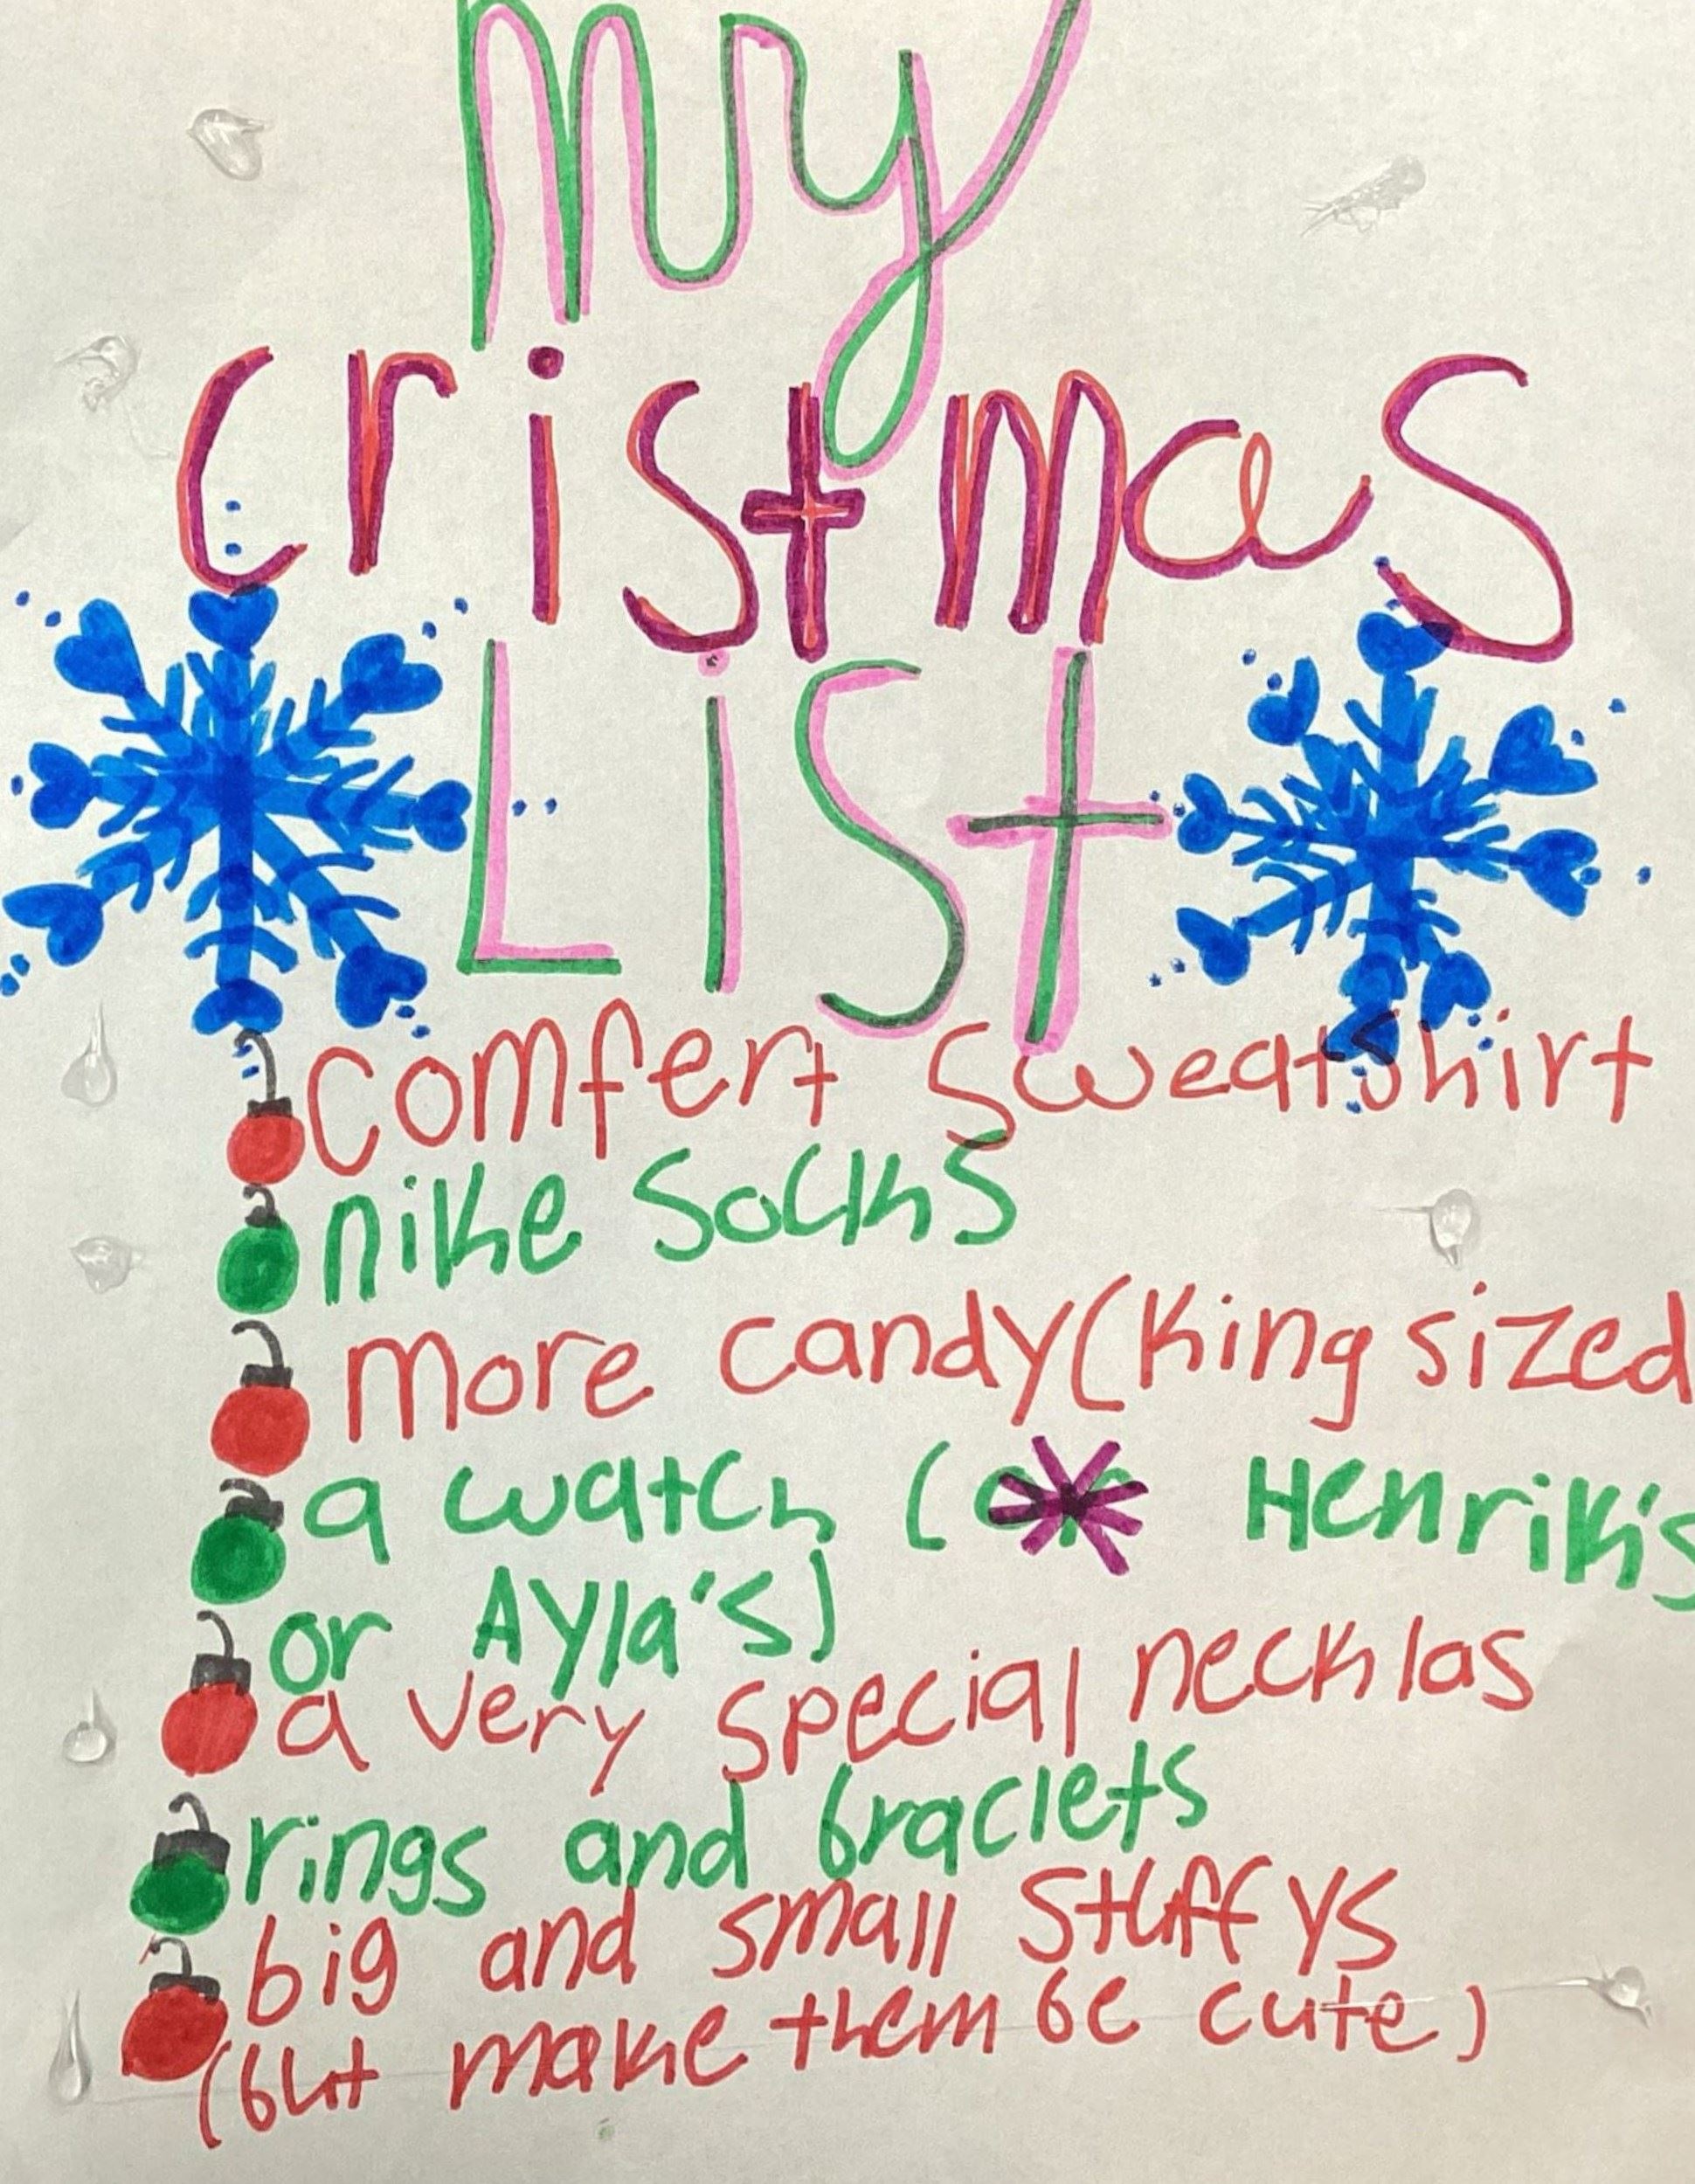 my
cristmas
List
comfert sweatshirt
nike socks
more candy(King sized
a watch ( Henrik's
or Ayla's)
a very special necklas
rings and braclets
big and small stuffys
(but make them be cute)